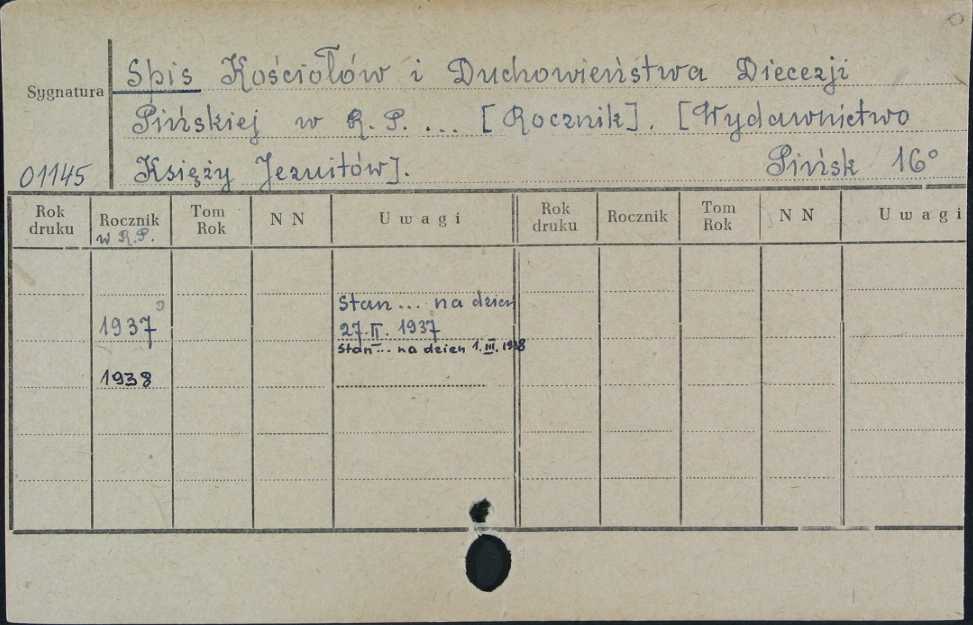 Sygnatura
Spis Kościołów i Duchowieństwa Diecezji
Pińskiej w R. P. ... [Rocznik]. [Wydawnictwo
01145
Księży Jezuitów].
Pińsk 16°
Rok druku
Rocznik
w R.P.
Tom Rok
N N
Uwagi
Rok druku
Rocznik
Tom Rok
N N
Uwagi
Stan ... na dzień
1937
27.II. 1937
Stan ... na dzień 1.III. 1938
1938